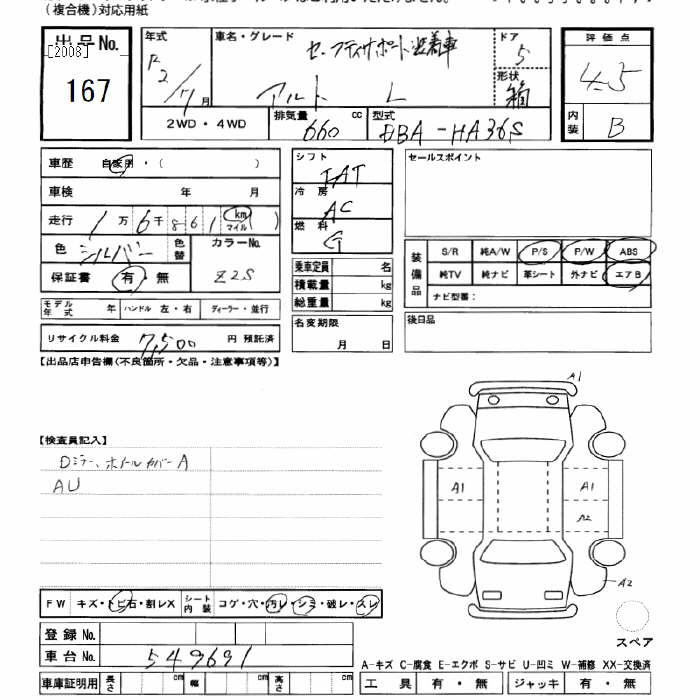 (複合機)対応用紙
出品No.
[2008]
167
年式
R2/7月
車名・グレード
セーフティサポート装着車
アルト L
ドア
5
形状
箱
2WD・4WD
排気量
660 cc
型式
DBA-HA36S
評価点
4.5
内装
B
車歴 自家用・( )
車検 年 月
走行 1万6千861 km マイル
色 シルバー 色替 カラーNo.
Z2S
保証書 有 無
モデル年式 年 ハンドル 左・右 ディーラー・並行
リサイクル料金 7,500 円 預託済
シフト
FAT
冷房
AC
燃料
G
乗車定員 名
積載量 kg
総重量 kg
名変期限
月 日
セールスポイント
装備品
S/R 純A/W P/S P/W ABS
純TV 純ナビ 革シート 外ナビ エアB
ナビ型番:
後日品
【出品店申告欄(不良箇所・欠品・注意事項等)】
【検査員記入】
Dミラー、ホイールカバーA
AU
A1
A1
A1
A2
A2
スペア
FW キズ・トビ石・割レX シート内装 コゲ・穴・汚レ・シミ・破レ・スレ
登録No.
車台No. 549691
車庫証明用 長さ cm 幅 cm 高さ cm
A-キズ C-腐食 E-エクボ S-サビ U-凹ミ W-補修 XX-交換済
工具 有・無 ジャッキ 有・無